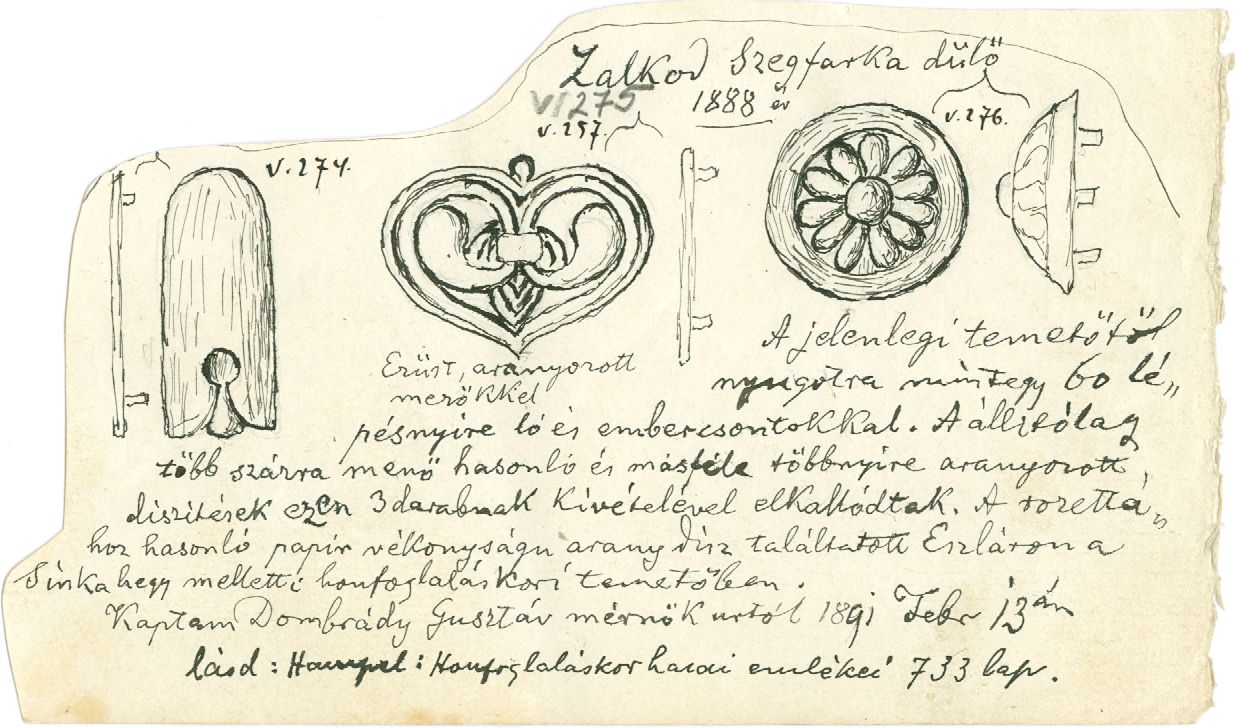 Zalkod Szegfarka dülő
1888 év
VI275
v.257.
v.276.
v.274.
Ezüst, aranyozott
mezőkkel
A jelenlegi temetőtől
nyugotra mintegy 60 lé„
pésnyire ló és embercsontokkal. A állitólag
több százra menő hasonló és másféle többnyire aranyozott
diszitések ezen 3 darabnak kivételével elkallódtak. A rozettá„
hoz hasonló papir vékonyságu arany disz találtatott Eszláron a
Sinkahegy melletti honfoglaláskori temetőben.
Kaptam Dombrády Gusztáv mérnök urtól 1891 Febr 13án
lásd : Hampel : Honfoglaláskor hazai emlékei 733 lap.